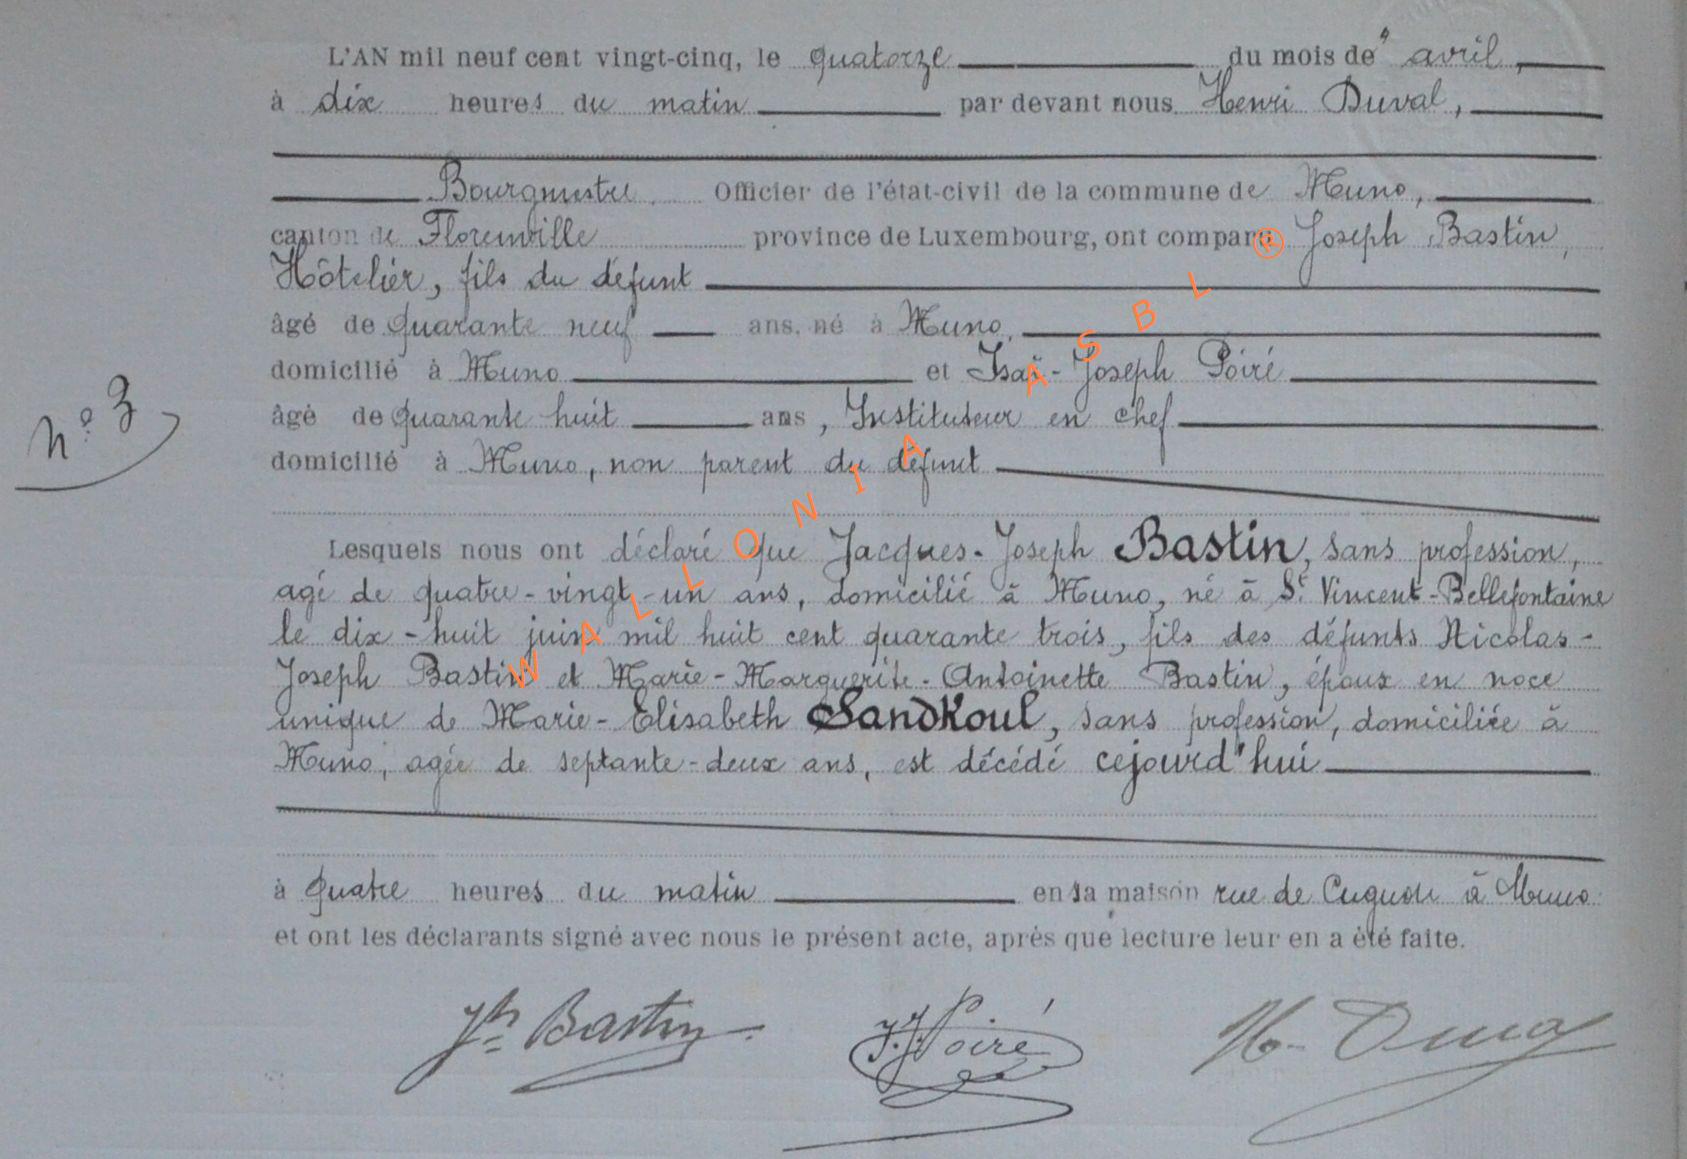 L'AN mil neuf cent vingt-cinq, le quatorze du mois de avril,
à dix heures du matin par devant nous Henri Duval,
Bourgmestre Officier de l'état-civil de la commune de Muno,
canton de Florenville province de Luxembourg, ont comparu Joseph Bastin,
Hôtelier, fils du défunt
âgé de quarante neuf ans, né à Muno,
domicilié à Muno et Isaï-Joseph Poiré
nº 3
âgé de quarante huit ans, Instituteur en chef
domicilié à Muno, non parent du défunt
Lesquels nous ont déclaré que Jacques-Joseph Bastin, sans profession,
agé de quatre-vingt-un ans, domicilié à Muno, né à St Vincent-Bellefontaine
le dix-huit juin mil huit cent quarante trois, fils des défunts Nicolas-
Joseph Bastin et Marie-Marguerite-Antoinette Bastin, époux en noce
unique de Marie-Elisabeth Sandkoul, sans profession, domiciliée à
Muno, agée de septante-deux ans, est décédé cejourd'hui
à quatre heures du matin en sa maison rue de Cugnon à Muno
et ont les déclarants signé avec nous le présent acte, après que lecture leur en a été faite.
Jh Bastin J.J. Poiré H. Duval
WALLONIA ASBL ®